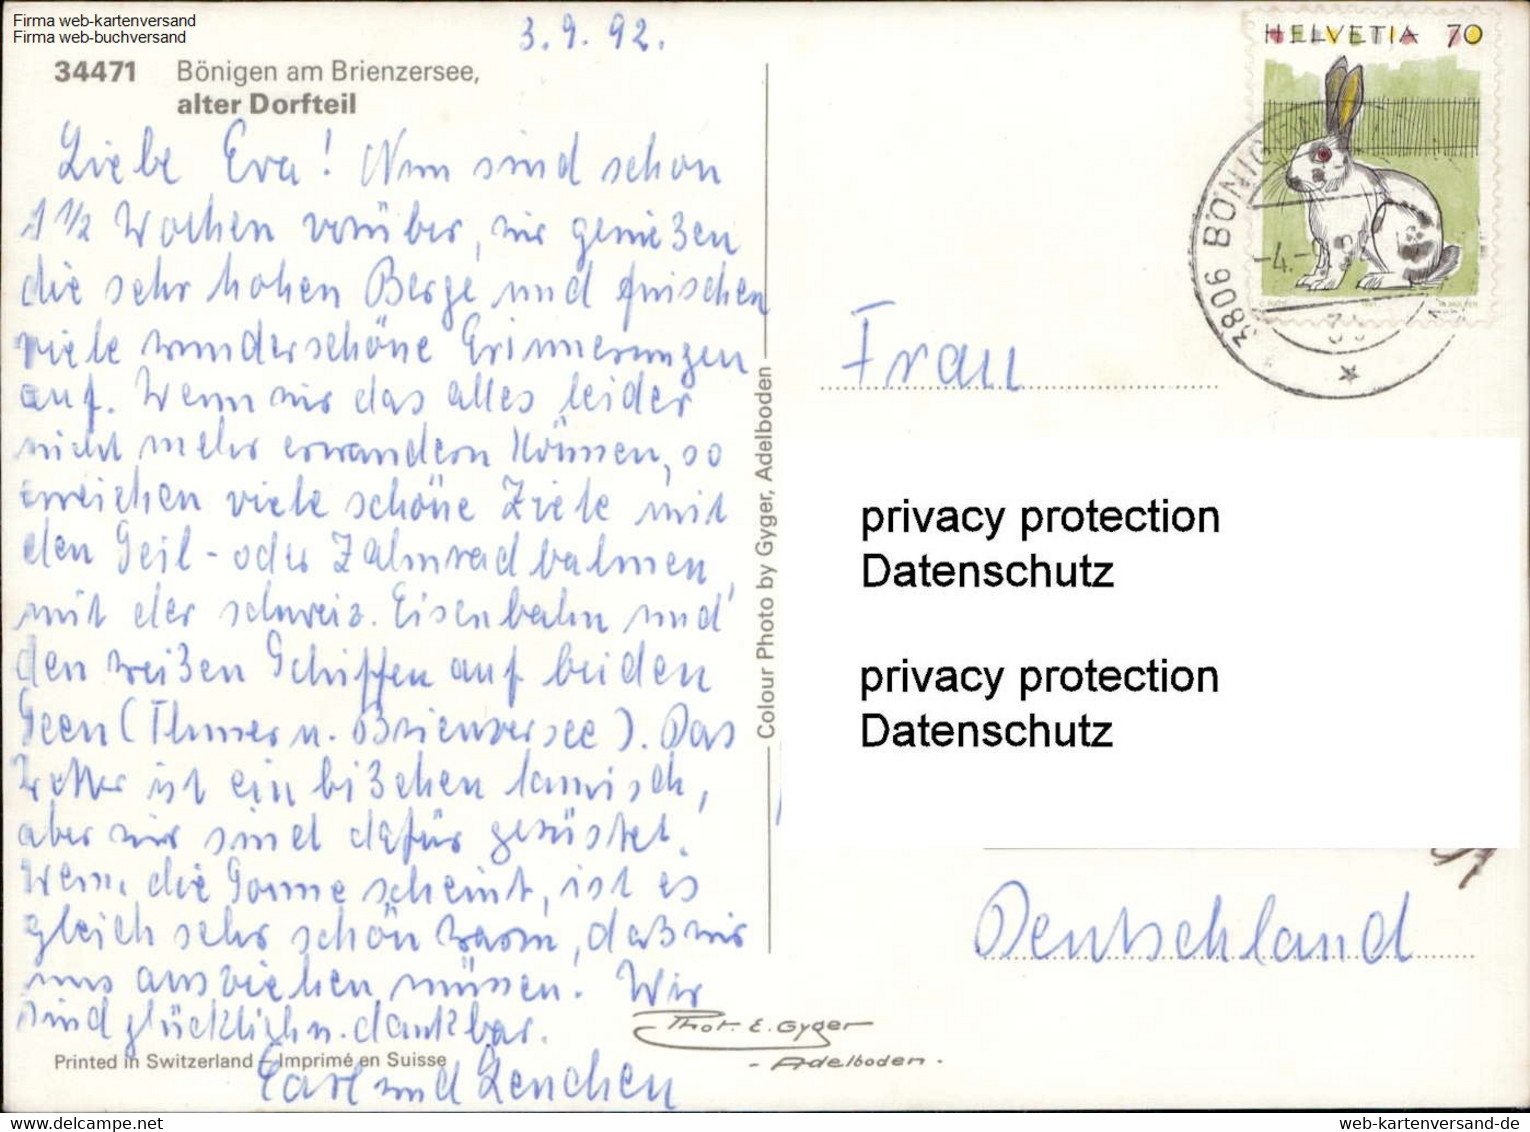 Firma web-kartenversand
Firma web-buchversand
3.9.92.
34471 Bönigen am Brienzersee,
alter Dorfteil
Liebe Eva! Nun sind schon
1 1/2 Wochen vorüber, wir genießen
die sehr hohen Berge und frischen
viele wunderschöne Erinnerungen
auf. Wenn wir das alles leider
nicht mehr erwandern können, so
erreichen viele schöne Ziele mit
den Seil- oder Zahnradbahnen,
mit der schweiz. Eisenbahn und
den weißen Schiffen auf beiden
Seen (Thuner u. Brienzersee). Das
Wetter ist ein bißchen launisch,
aber wir sind dafür gerüstet.
Wenn die Sonne scheint, ist es
gleich sehr schön warm, daß wir
uns ausziehen müssen. Wir
sind glücklich u. dankbar.
Carl und Lenchen
Printed in Switzerland – Imprimé en Suisse
Phot. E. Gyger
- Adelboden -
Colour Photo by Gyger, Adelboden
HELVETIA 70
3806 BÖNIGEN
-4.-
Frau
privacy protection
Datenschutz
privacy protection
Datenschutz
Deutschland
web-kartenversand-de